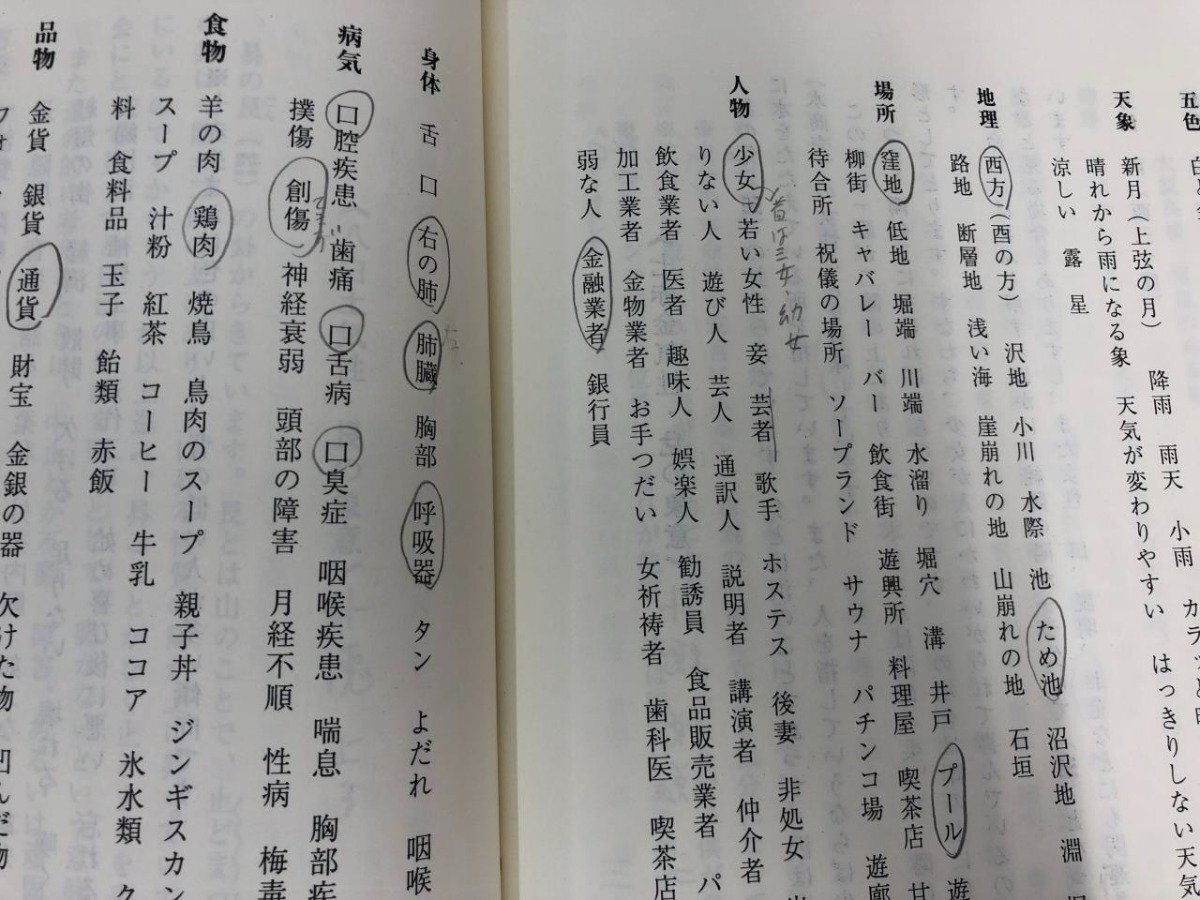 五色
天象 新月(上弦の月) 降雨 雨天 小雨
晴れから雨になる象 天気が変わりやすい はっきりしない天気
涼しい 露 星
地理 西方(酉の方) 沢地 小川 水際 池 ため池 沼沢地 淵
路地 断層地 浅い海 崖崩れの地 山崩れの地 石垣
場所 窪地 低地 堀端 川端 水溜り 堀穴 溝 井戸 プール 遊
柳街 キャバレー バー 飲食街 遊興所 料理屋 喫茶店 甘
待合所 祝儀の場所 ソープランド サウナ パチンコ場 遊廓
人物 少女 若い女性 妾 芸者 歌手 ホステス 後妻 非処女
昔は三女 幼女
りない人 遊び人 芸人 通訳人 説明者 講演者 仲介者
飲食業者 医者 趣味人 娯楽人 勧誘員 食品販売業者 パ
加工業者 金物業者 お手つだい 女祈祷者 歯科医 喫茶店
弱な人 金融業者 銀行員
身体 舌 口 右の肺 肺臓 胸部 呼吸器 タン よだれ 咽喉
病気 口腔疾患 歯痛 口舌病 口臭症 咽喉疾患 喘息 胸部疾
撲傷 創傷 神経衰弱 頭部の障害 月経不順 性病 梅毒
食物 羊の肉 鶏肉 焼鳥 鳥肉のスープ 親子丼 ジンギスカン
スープ 汁粉 紅茶 コーヒー 牛乳 ココア 氷水類 ク
料 食料品 玉子 飴類 赤飯
品物 金貨 銀貨 通貨 財宝 金銀の器 欠けた物 凹んだ物